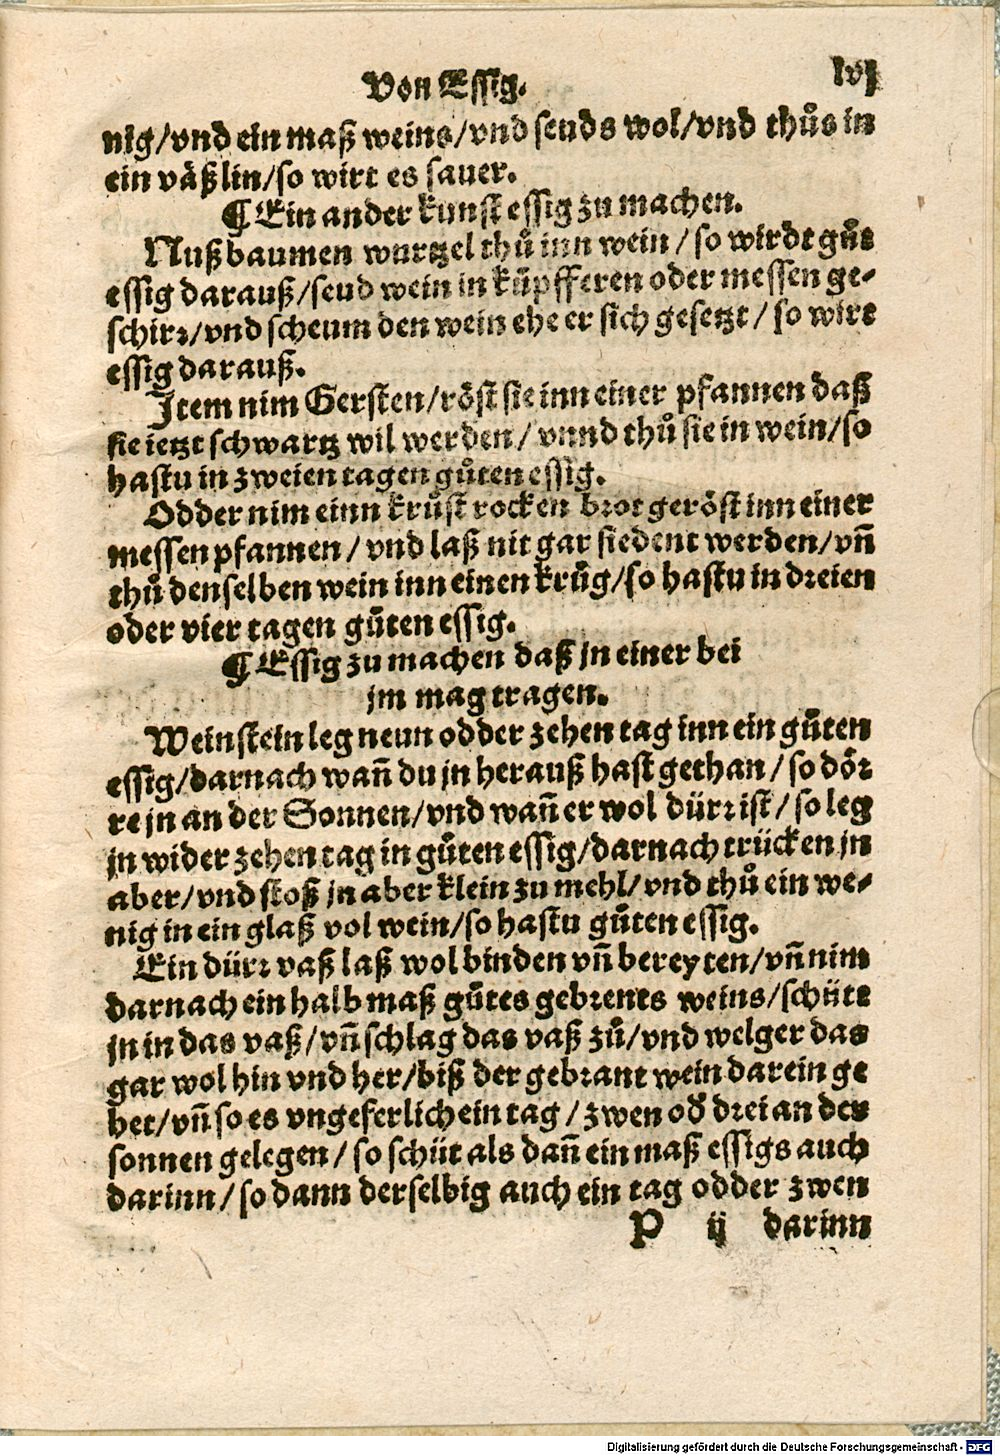 Von Essig. lvj
nig/vnd ein maß weins/vnd seuds wol/vnd thůs in
ein väßlin/so wirt es sauer.
¶ Ein ander kunst essig zu machen.
Nußbaumen wurtzel thů inn wein / so wirdt gůt
essig darauß/seud wein in küpfferen oder messen ge-
schirr/vnd scheum den wein ehe er sich gesetzt / so wirt
essig darauß.
Item nim Gersten/röst sie inn einer pfannen daß
sie ietzt schwartz wil werden/ vnnd thů sie in wein/so
hastu in zweien tagen gůten essig.
Odder nim einn krůst rocken brot geröst inn einer
messen pfannen / vnd laß nit gar siedent werden/vñ
thů denselben wein inn einen krůg/so hastu in dreien
oder vier tagen gůten essig.
¶ Essig zu machen daß jn einer bei
jm mag tragen.
Weinstein leg neun odder zehen tag inn ein gůten
essig/darnach wañ du jn herauß hast gethan / so dör
re jn an der Sonnen/vnd wañ er wol dürr ist / so leg
jn wider zehen tag in gůten essig/darnach trücken jn
aber/vnd stoß jn aber klein zu mehl/vnd thů ein we-
nig in ein glaß vol wein/so hastu gůten essig.
Ein dürr vaß laß wol binden vñ bereyten/vñ nim
darnach ein halb maß gůtes gebrents weins/schüte
jn in das vaß/vñ schlag das vaß zů/vnd welger das
gar wol hin vnd her/biß der gebrant wein darein ge
het/vñ so es vngeferlich ein tag / zwen oď drei an der
sonnen gelegen / so schüt als dañ ein maß essigs auch
darinn / so dann derselbig auch ein tag odder zwen
P ij darinn
Digitalisierung gefördert durch die Deutsche Forschungsgemeinschaft - DFG